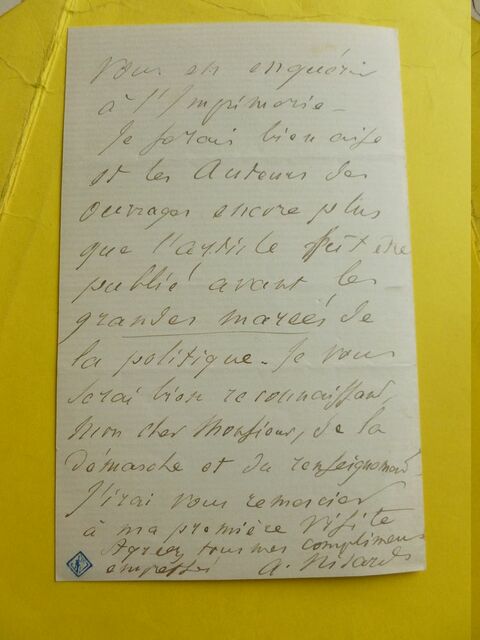 vous en enquérir
à l'Imprimerie –
Je serais bien aise
et les Auteurs des
ouvrages encore plus
que l'article fût
publié avant les
grandes marées de
la politique. Je vous
serai bien reconnaissant,
mon cher Monsieur, de la
démarche et du renseignement.
J'irai vous remercier
à ma première visite
Agréez tous mes compliments
empressés
A. Nisard